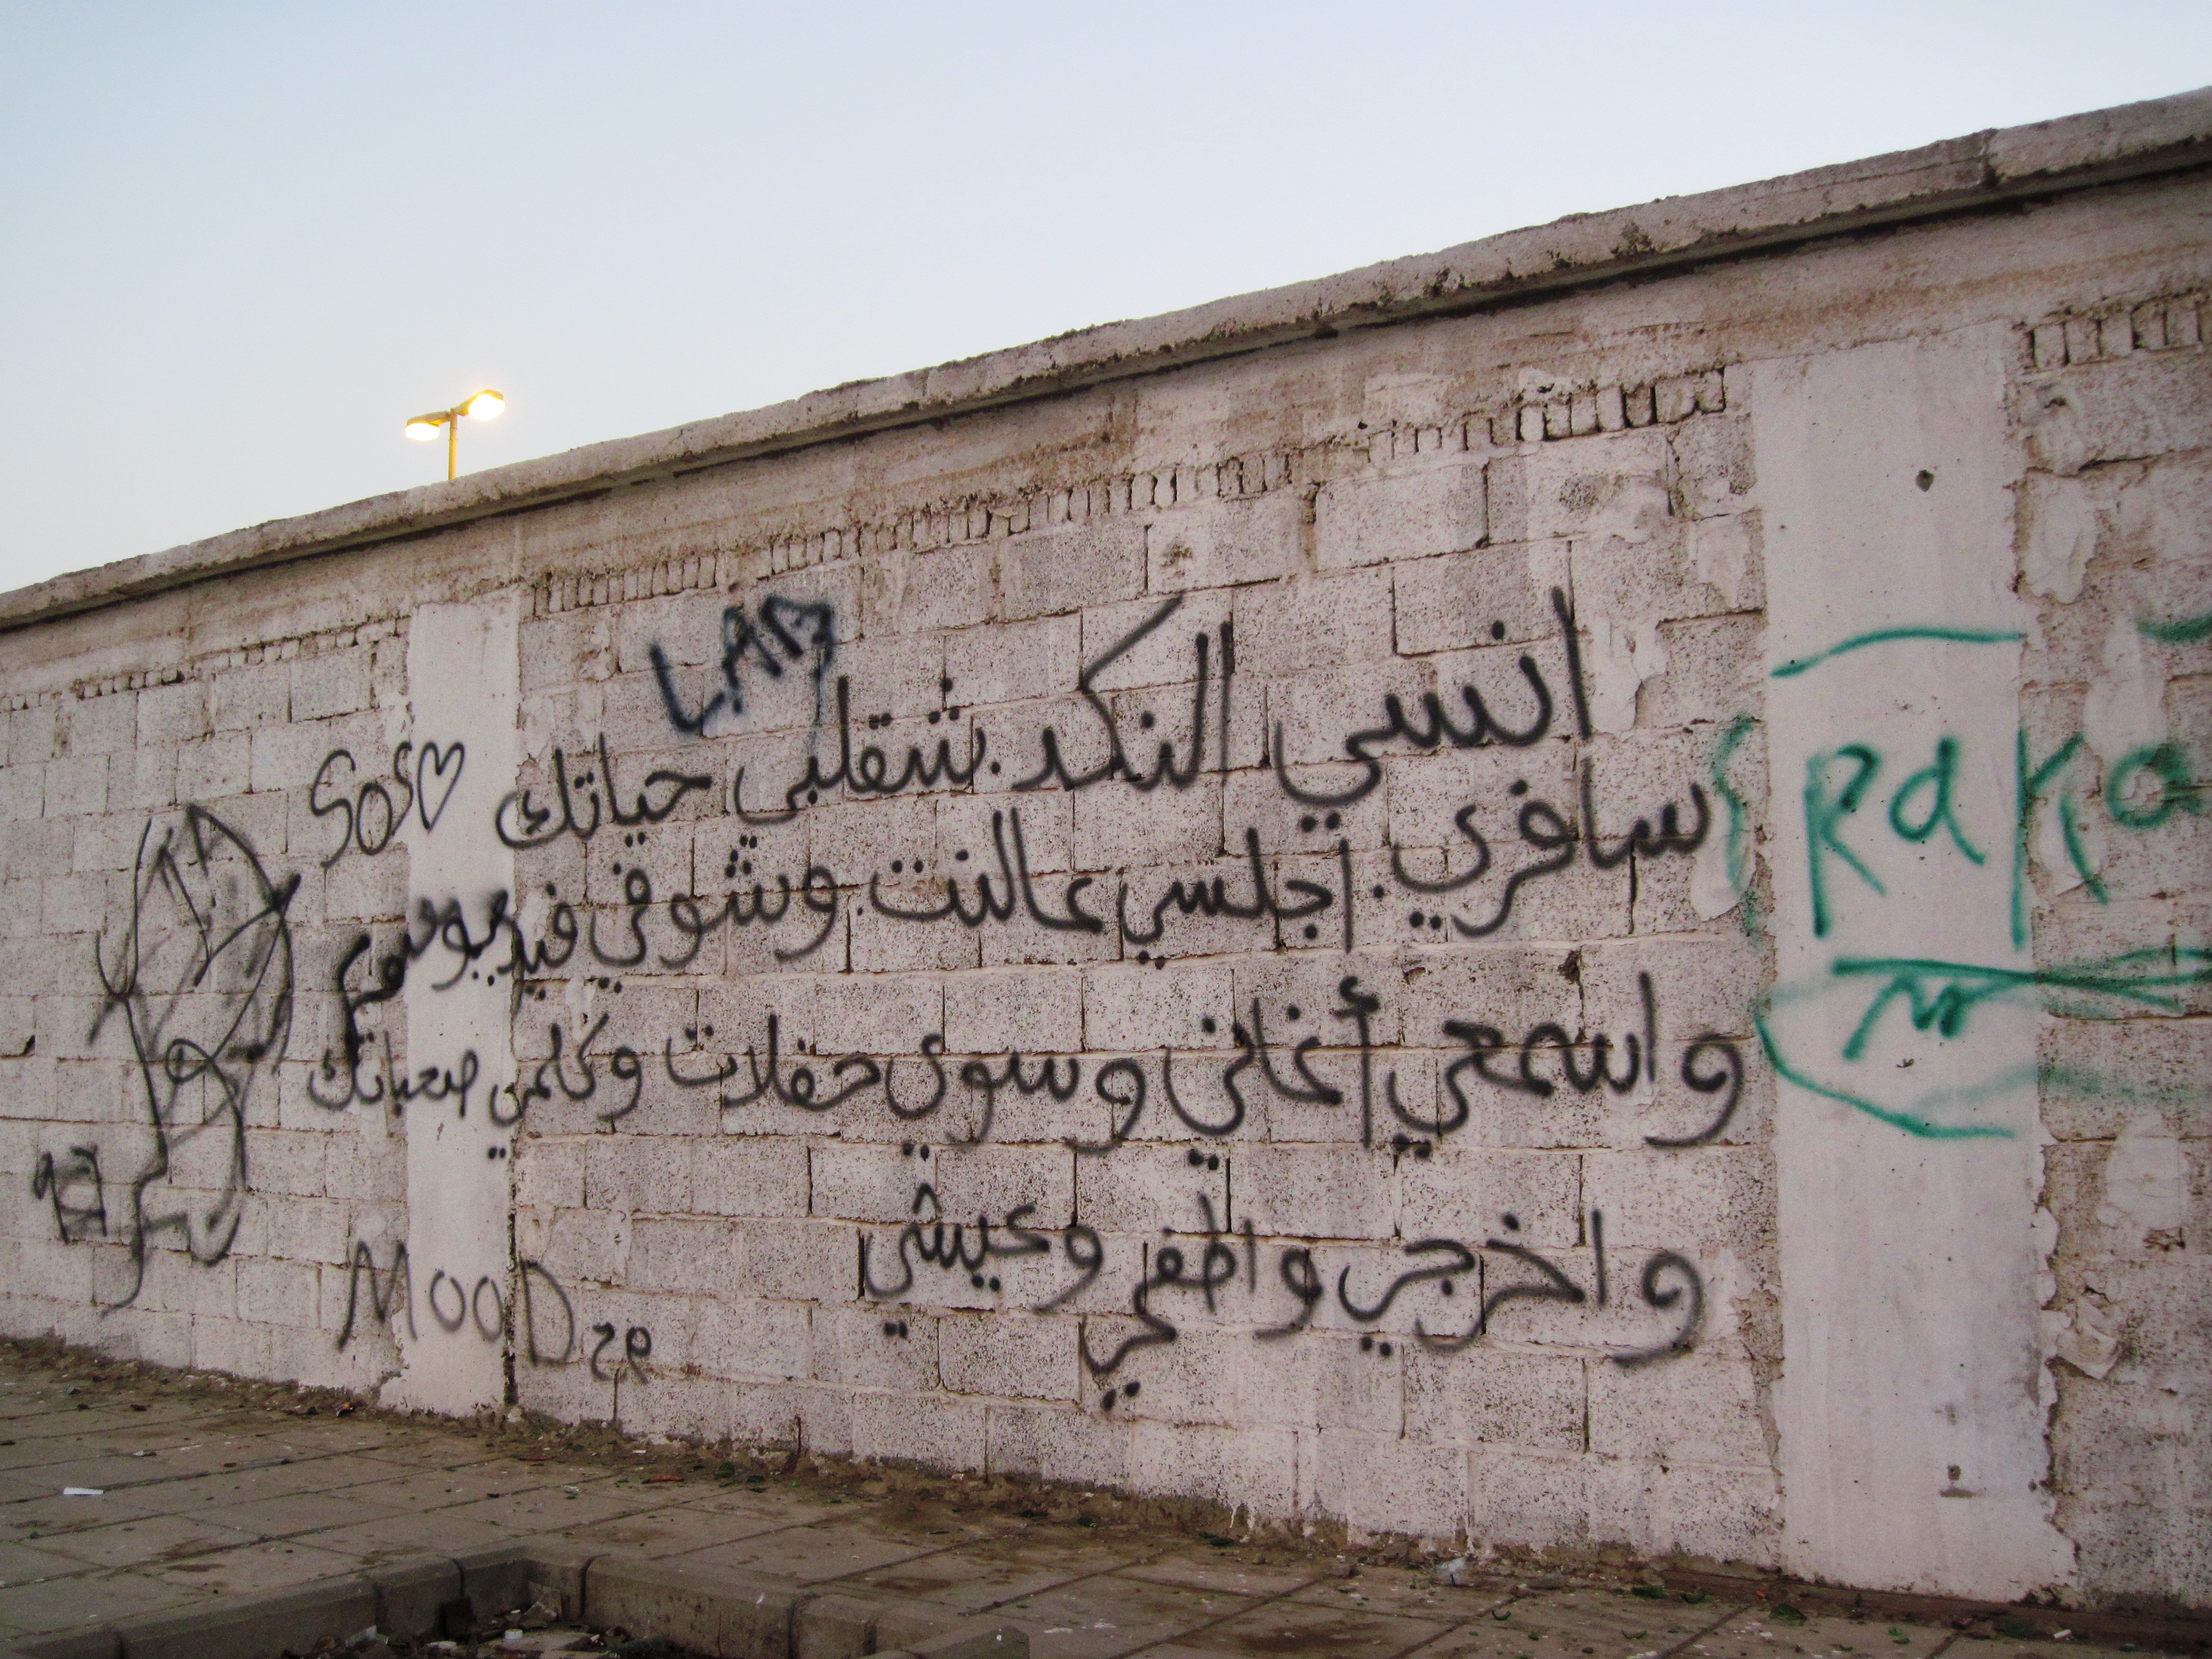 انسي النكد. شقلبي حياتك
سافري. أجلسي عالنت. وشوفي فيديوهات
واسمعي أغاني وسوي حفلات وكلمي صحباتك
واخرجي واطفي وعيشي
LAB
SOS♡
MOOD
RaKa